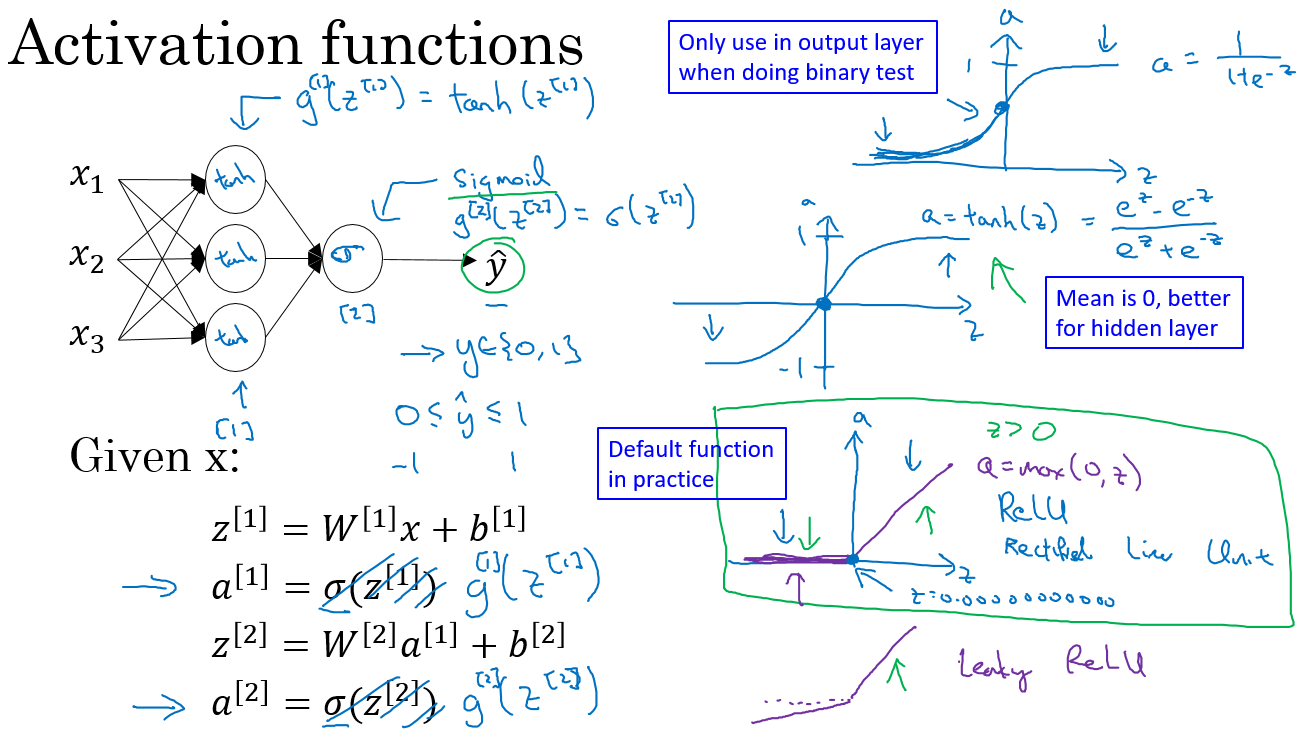 Activation functions
g^[1](z^[1]) = tanh(z^[1])
x₁
x₂
x₃
tanh
tanh
tanh
[1]
σ
[2]
Sigmoid
g^[2](z^[2]) = σ(z^[2])
ŷ
→ y∈{0,1}
0 ≤ ŷ ≤ 1
-1 1
Given x:
z^[1] = W^[1]x + b^[1]
→ a^[1] = σ(z^[1]) g^[1](z^[1])
z^[2] = W^[2]a^[1] + b^[2]
→ a^[2] = σ(z^[2]) g^[2](z^[2])
Only use in output layer
when doing binary test
a
1
z
a = 1/(1+e^-z)
a
1
-1
z
a = tanh(z) = (e^z - e^-z)/(e^z + e^-z)
Mean is 0, better
for hidden layer
Default function
in practice
a
z
z > 0
a = max(0,z)
ReLU
Rectified Linear Unit
z=0.000000000000
Leaky ReLU